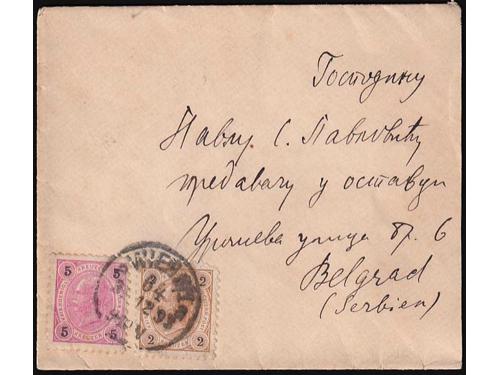 Господину
Павлу С. Павловићу
предавачу у оставци
улица бр. 6
Belgrad
(Serbien)
5 5
5 5
2
2 2
WIEN